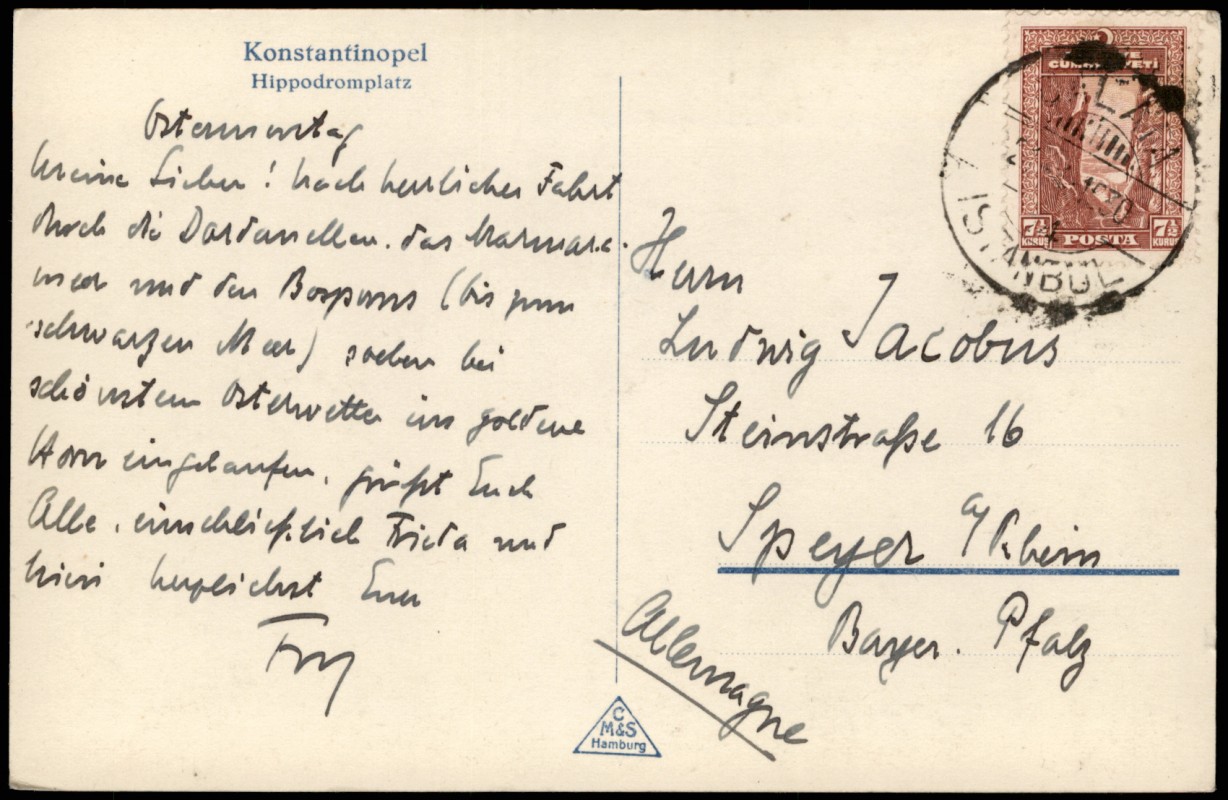 Konstantinopel
Hippodromplatz
Ostermontag
Meine Lieben! Nach herrlicher Fahrt
durch die Dardanellen, das Marmara-
meer und den Bosporus (bis zum
schwarzen Meer) soeben bei
schönstem Osterwetter ins goldene
Horn eingelaufen, grüßt Euch
Alle, einschließlich Frieda und
herzlichst Euer
Herrn
Ludwig Jacobus
Steinstraße 16
Speyer a/Rhein
Bayer. Pfalz
Allemagne
C
M&S
Hamburg
CUMHURİYETİ
7½ KURUŞ POSTA 7½ KURUŞ
GALATA
1930
ISTANBUL